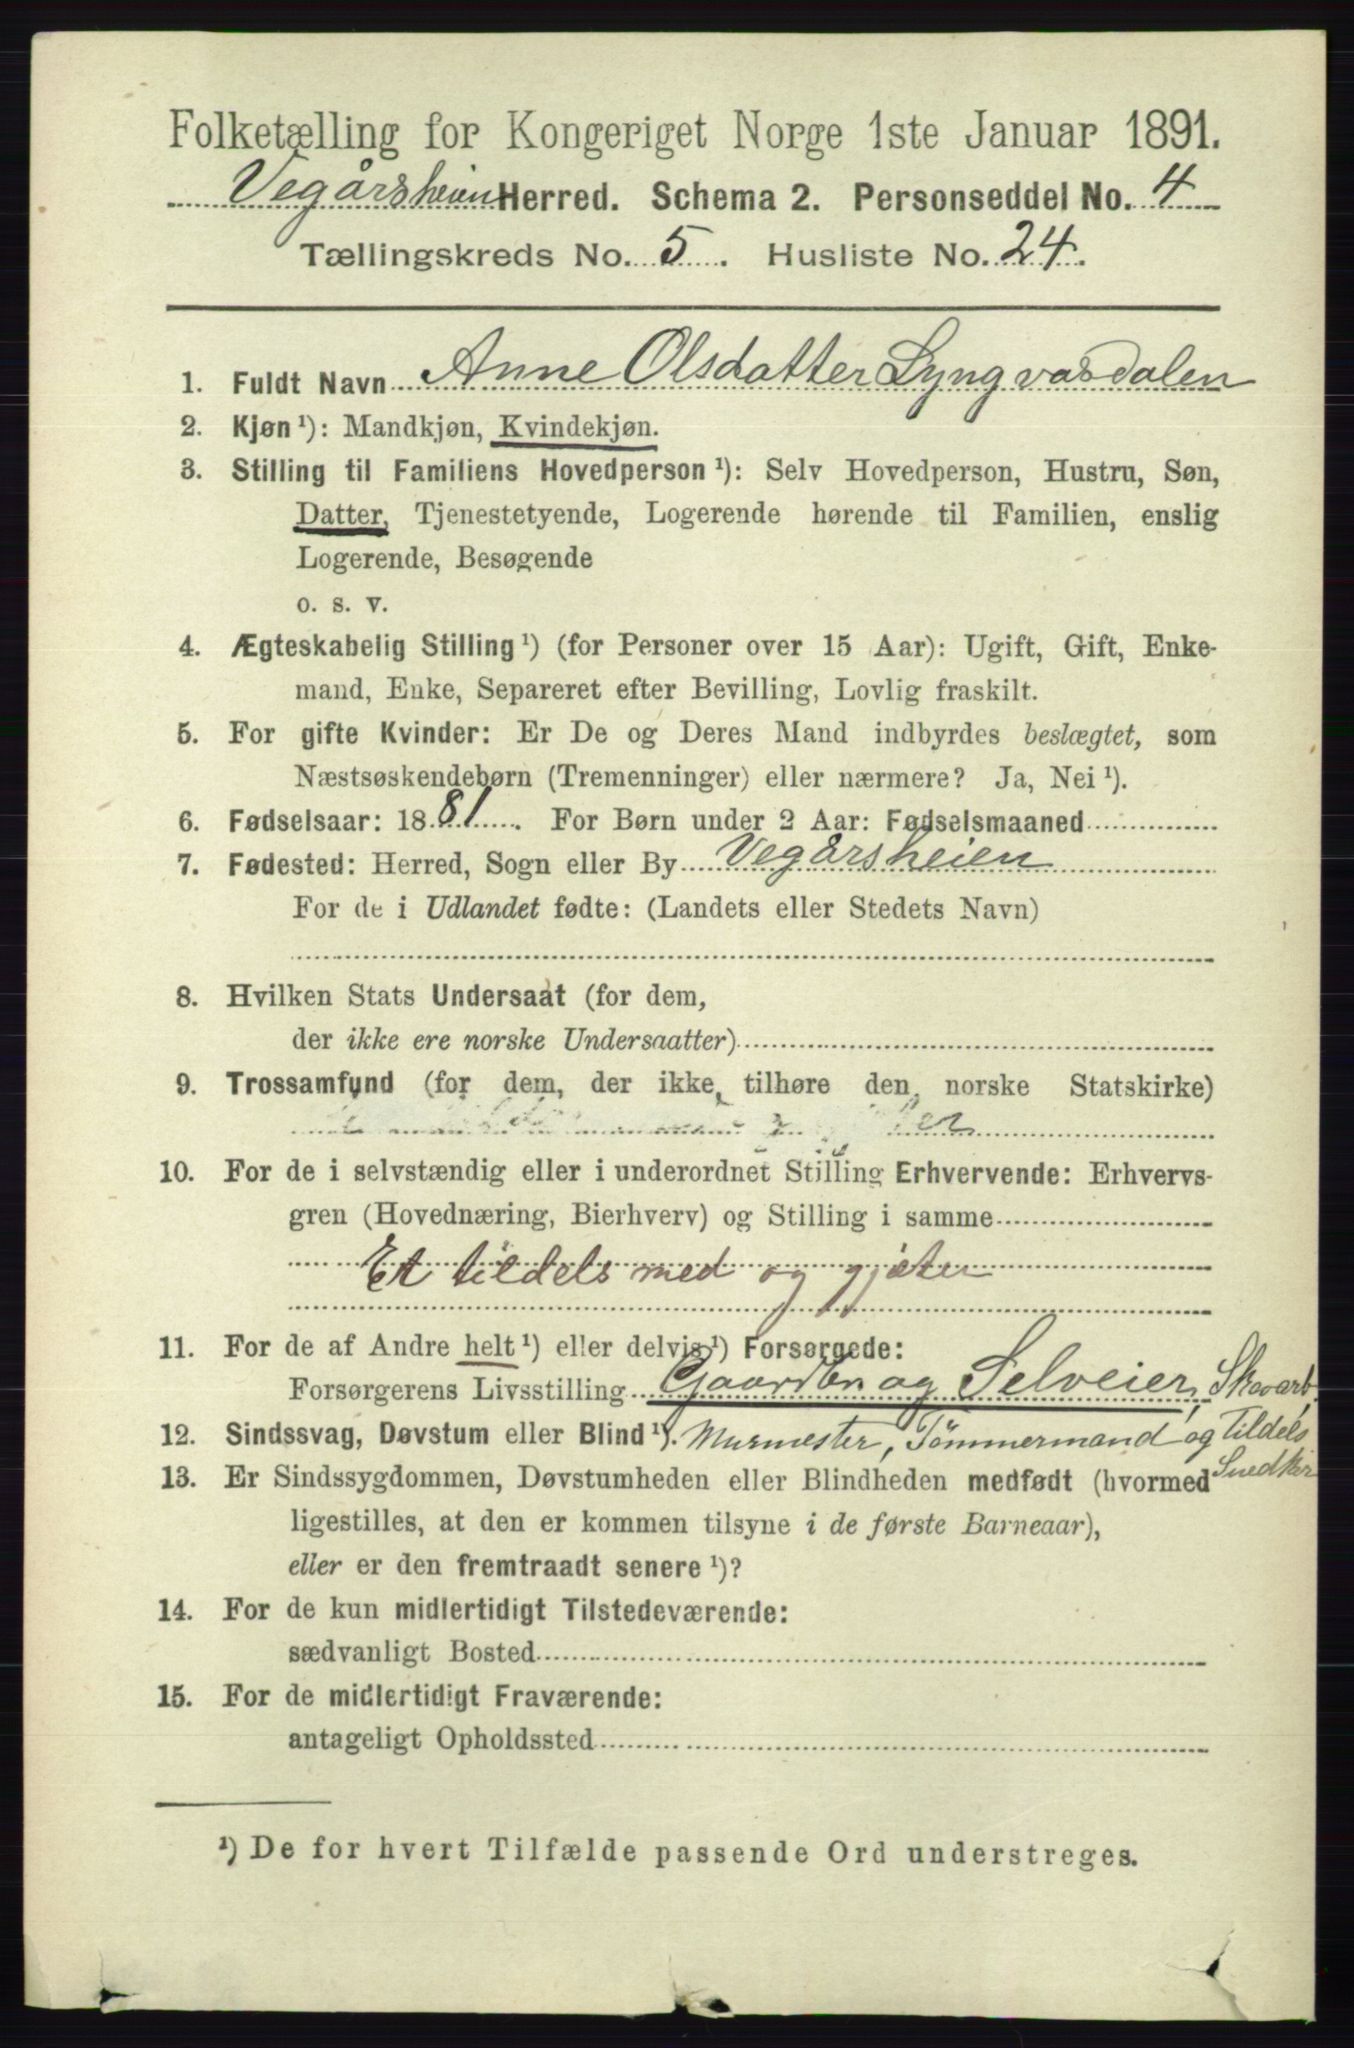 Folketælling for Kongeriget Norge 1ste Januar 1891.
Vegårsheien Herred. Schema 2. Personseddel No. 4
Tællingskreds No. 5. Husliste No. 24.
1. Fuldt Navn Anne Olsdatter Lyngvasdalen
2. Kjøn ¹): Mandkjøn, Kvindekjøn.
3. Stilling til Familiens Hovedperson ¹): Selv Hovedperson, Hustru, Søn,
Datter, Tjenestetyende, Logerende hørende til Familien, enslig
Logerende, Besøgende
o. s. v.
4. Ægteskabelig Stilling ¹) (for Personer over 15 Aar): Ugift, Gift, Enke-
mand, Enke, Separeret efter Bevilling, Lovlig fraskilt.
5. For gifte Kvinder: Er De og Deres Mand indbyrdes beslægtet, som
Næstsøskendebørn (Tremenninger) eller nærmere? Ja, Nei ¹).
6. Fødselsaar: 1881. For Børn under 2 Aar: Fødselsmaaned
7. Fødested: Herred, Sogn eller By Vegårsheien
For de i Udlandet fødte: (Landets eller Stedets Navn)
8. Hvilken Stats Undersaat (for dem,
der ikke ere norske Undersaatter)
9. Trossamfund (for dem, der ikke tilhøre den norske Statskirke)
10. For de i selvstændig eller i underordnet Stilling Erhvervende: Erhvervs-
gren (Hovednæring, Bierhverv) og Stilling i samme
tildels med og gjæter
11. For de af Andre helt ¹) eller delvis ¹) Forsørgede:
Forsørgerens Livsstilling Gaardbr og Selveier, Skovarb.
12. Sindssvag, Døvstum eller Blind ¹). Murmester, Tömmermand og Tildels
Snedker
13. Er Sindssygdommen, Døvstumheden eller Blindheden medfødt (hvormed
ligestilles, at den er kommen tilsyne i de første Barneaar),
eller er den fremtraadt senere ¹)?
14. For de kun midlertidigt Tilstedeværende:
sædvanligt Bosted
15. For de midlertidigt Fraværende:
antageligt Opholdssted
¹) De for hvert Tilfælde passende Ord understreges.